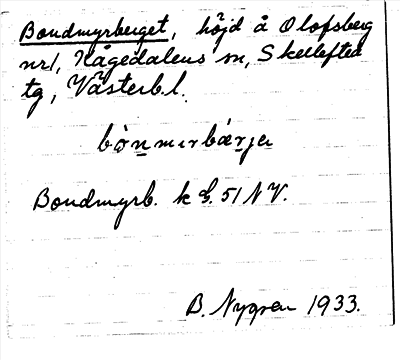 Bondmyrberget, höjd å Olofsberg
nr 1, Kågedalens sn, Skellefteå
tg, Västerb.l.
bònmɩrbǽrjɐ
Bondmyrb. k bl. 51 NV.
B. Nygren 1933.